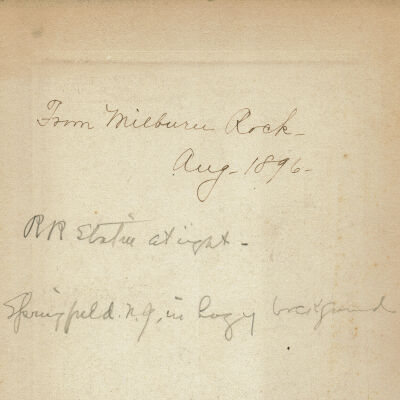 From Milburn Rock -
Aug - 1896 -
RR Station at right -
Springfield. N.J. in hazy background